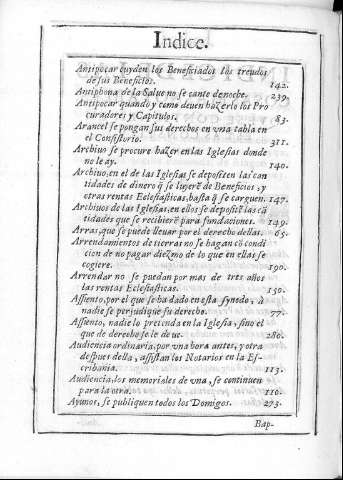 Indice.
Antipocar cuyden los Beneficiados los treudos
de sus Beneficios. 142.
Antiphona de la Salue no se cante de noche. 239.
Antipocar quando y como deuen hazerlo los Pro
curadores y Capitulos. 83.
Arancel se pongan sus derechos en vna tabla en
el Consistorio. 311.
Archiuo se procure hazer en las Iglesias donde
no le ay. 140.
Archiuo, en el de las Iglesias se depositen las can
tidades de dinero q̃ se luyerẽ de Beneficios, y
otras rentas Eclesiasticas, hasta q̃ se carguen. 147.
Archiuos de las Iglesias, en ellos se depositẽ las cã
tidades que se recibierẽ para fundaciones. 149.
Arras, que se puede lleuar por el derecho dellas. 65.
Arrendamientos de tierras no se hagan cõ condi
cion de no pagar diezmo de lo que en ellas se
cogiere. 190.
Arrendar no se puedan por mas de tres años
las rentas Eclesiasticas. 150.
Assiento, por el que se ha dado en esta synodo, à
nadie se perjudique su derecho. 77.
Assiento, nadie lo pretenda en la Iglesia, sino el
que de derecho se le de ue. 280.
Audiencia ordinaria, por vna hora antes, y otra
despues della, assistan los Notarios en la Es-
cribania. 113.
Audiencia, los memoriales de vna, se continuen
para la otra. 110.
Ayunos, se publiquen todos los Domigos. 273.
Bap-